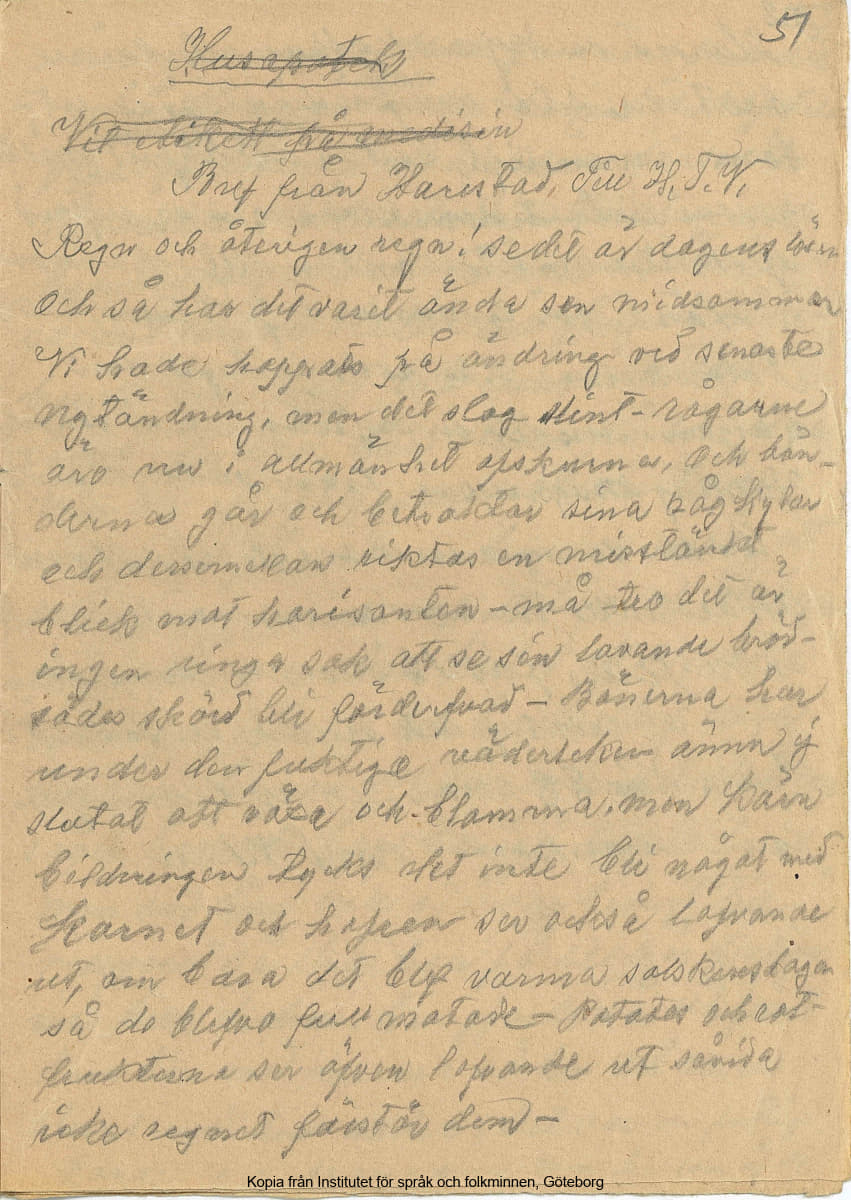 51
Husapotek
Vit etikett på medisin
Bref från Harestad. Till H. T. N.
Regn och återigen regn! se det är dagens lösen
Och så har det varit ända sen midsommar
Vi hade hoppats på ändring vid senaste
nytändning, men det slog slint - rågarne
äro nu i allmänhet afskurna, och bön-
derna går och betraktar sina rågskylar
och dessemellan riktas en misstänkt
blick mot horisonten - må tro det är
ingen ringa sak att se sin lovande bröd-
sädes skörd bli förderfvad - Bönerna har
under den fuktige väderleken ännu ej
slutat att växa och blomma, men kärn
bildningen tycks det inte bli något med
Kornet och hafren ser också lofvande
ut, om bara det blef varma solskensdagar
så de blefvo full matade - Potates och rot-
frukterna ser äfven lofvande ut såvida
icke regnet förstör dem -
Kopia från Institutet för språk och folkminnen, Göteborg